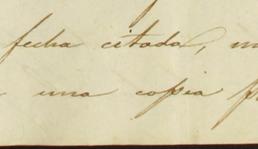 fecha citada,
una copia